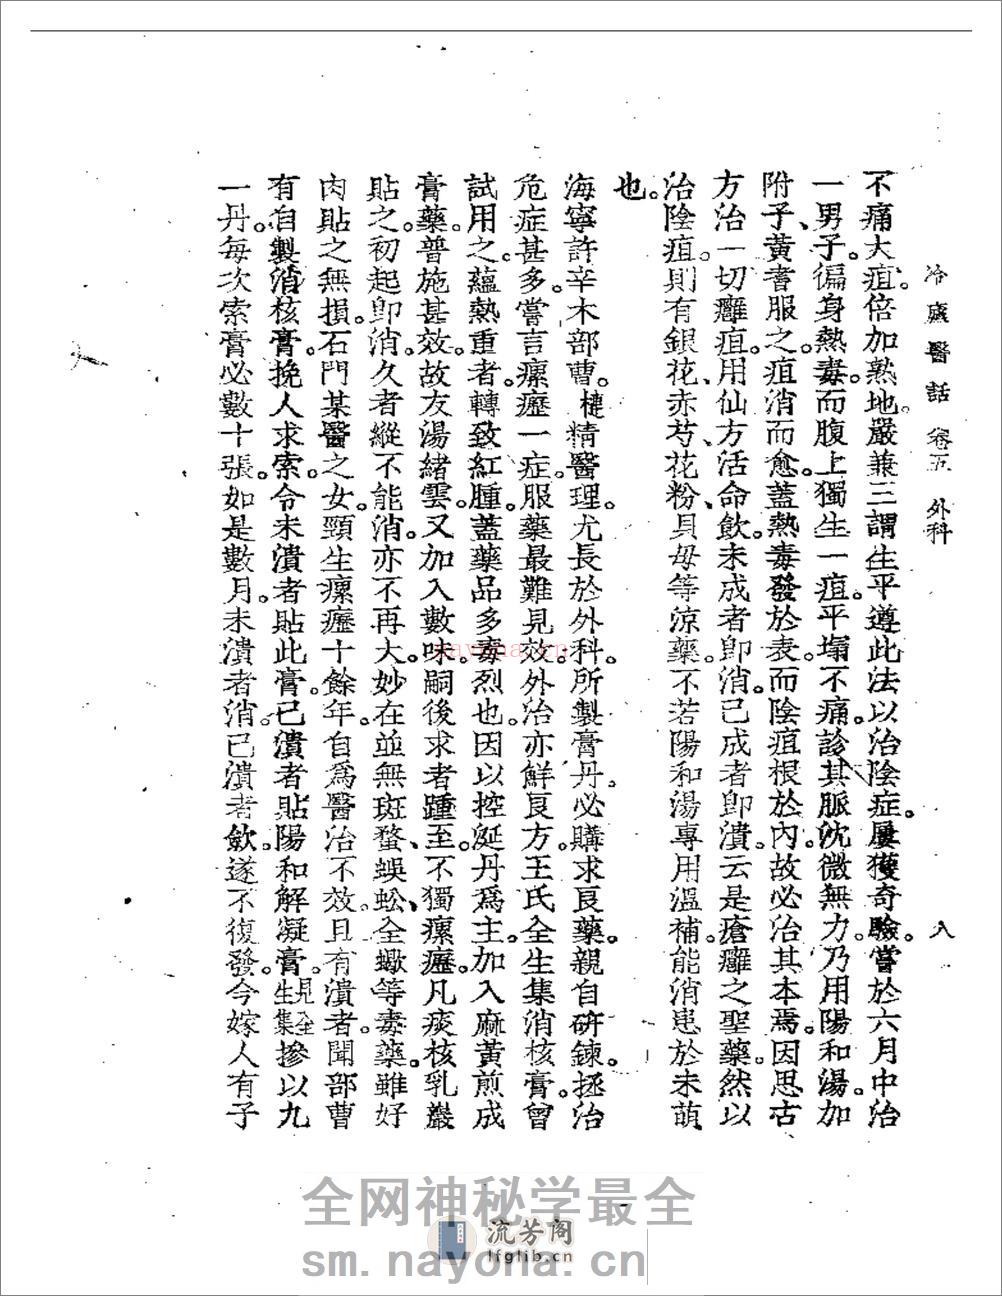 冷廬醫話 卷五 外科 八
不痛大疽。倍加熟地。嚴兼三謂生平遵此法以治陰症。屢獲奇驗。嘗於六月中治
一男子。徧身熱毒。而腹上獨生一疽。平塌不痛。診其脈沈微無力。乃用陽和湯。加
附子、黃耆服之。疽消而愈。蓋熱毒發於表。而陰疽根於內。故必治其本焉。因思古
方治一切癰疽。用仙方活命飲。未成者卽消。已成者卽潰。云是瘡癰之聖藥。然以
治陰疽。則有銀花、赤芍、花粉、貝母等涼藥。不若陽和湯專用溫補。能消患於未萌
也。
海寧許辛木部曹。楗精醫理。尤長於外科。所製膏丹。必購求良藥。親自硏鍊。拯治
危症甚多。嘗言瘰癧一症。服藥最難見效。外治亦鮮良方。王氏全生集消核膏。曾
試用之。蘊熱重者。轉致紅腫。蓋藥品多毒烈也。因以控涎丹爲主。加入麻黃煎成
膏藥。普施甚效。故友湯緒雲。又加入數味。嗣後求者踵至。不獨瘰癧。凡痰核乳巖
貼之。初起卽消。久者縱不能消。亦不再大。妙在並無斑蝥、蜈蚣、全蠍等毒藥。雖好
肉貼之無損。石門某醫之女。頸生瘰癧十餘年。自爲醫治不效。且有潰者。聞部曹
有自製消核膏。挽人求索。令未潰者貼此膏。已潰者貼陽和解凝膏。見全生集摻以九
一丹。每次索膏必數十張。如是數月。未潰者消。已潰者斂。遂不復發。今嫁人有子
nayona.cn
全网神秘学最全
流芳阁
lfglib.cn
sm.nayona.cn